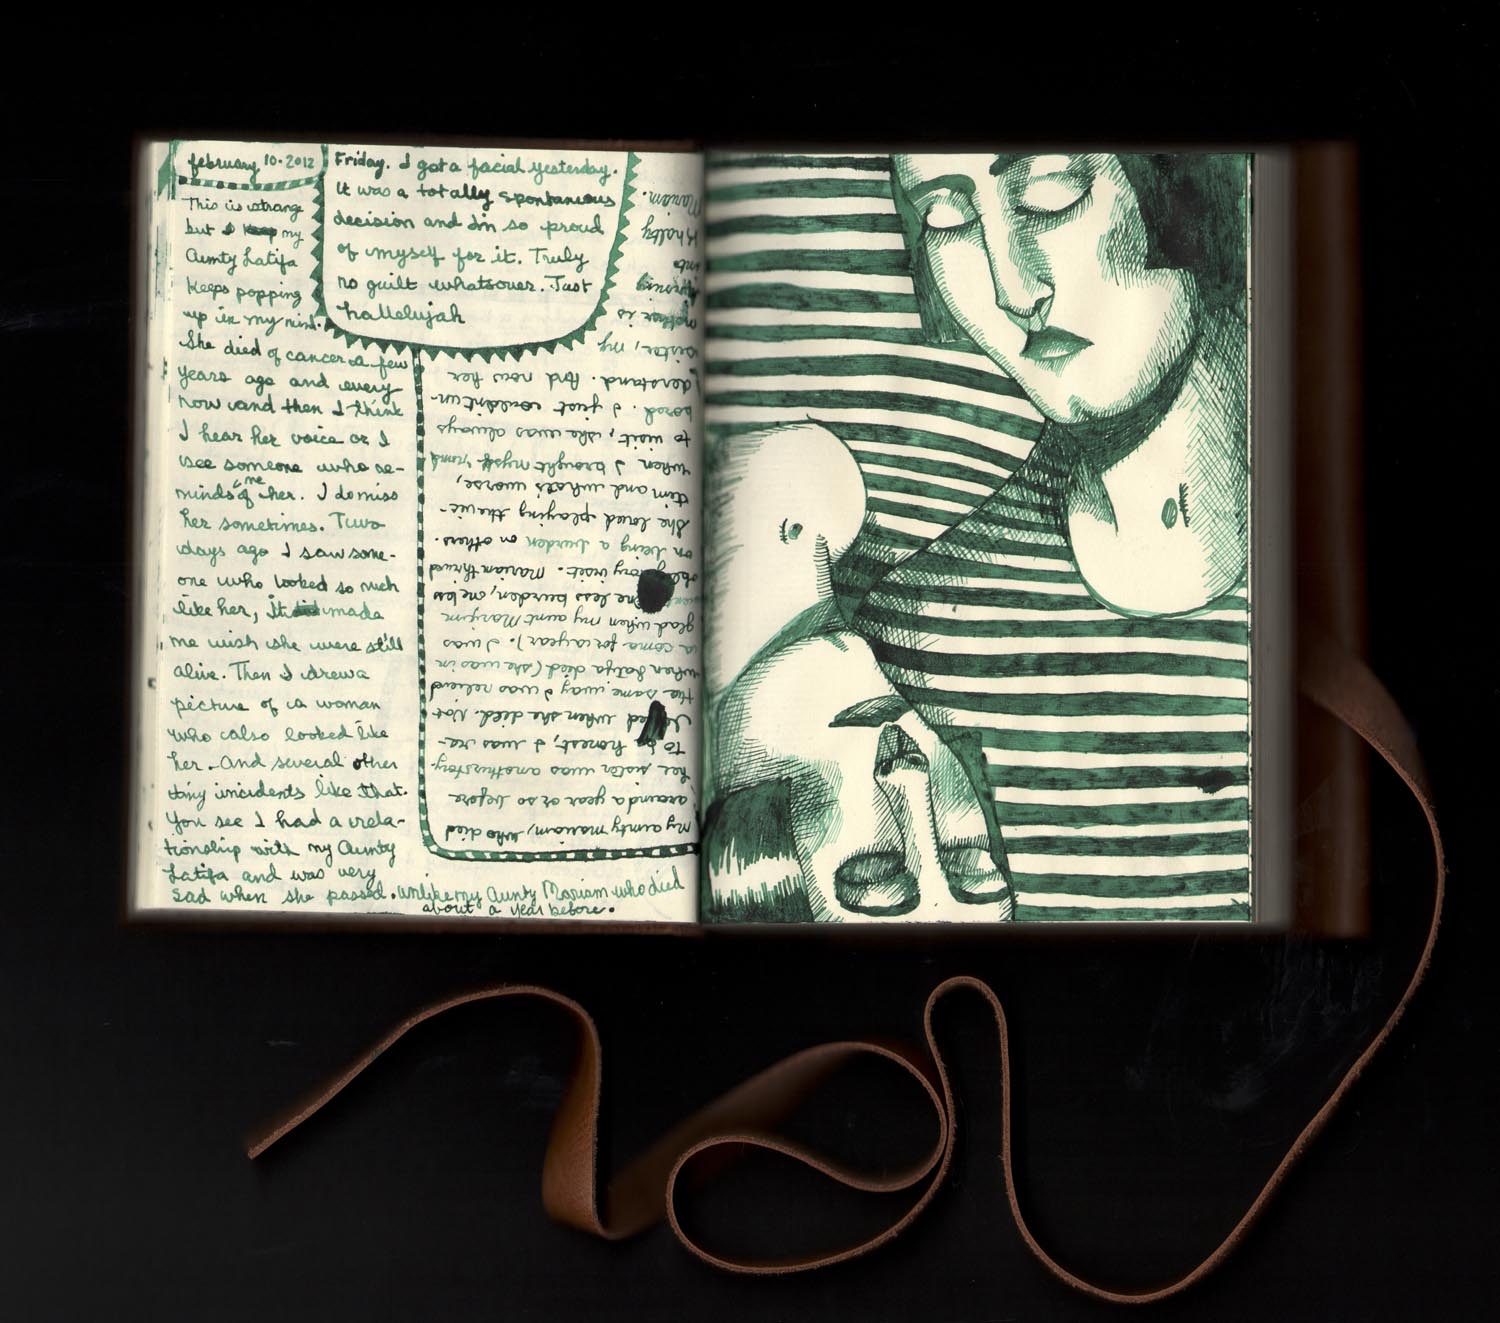 february 10.2012
Friday. I got a facial yesterday.
It was a totally spontaneous
decision and I'm so proud
of myself for it. Truly
no guilt whatsover. Just
hallelujah
This is strange
but my
Aunty Latifa
keeps popping
up in my mind.
She died of cancer a few
years ago and every
now and then I think
I hear her voice or I
see someone who re-
minds me of her. I do miss
her sometimes. Two
days ago I saw some-
one who looked so much
like her, it made
me wish she were still
alive. Then I drew a
picture of a woman
who also looked like
her. And several other
tiny incidents like that.
You see I had a rela-
tionship with my Aunty
Latifa and was very
sad when she passed. Unlike my Aunty Mariam who died
about a year before.
my aunty mariam, who died
around a year or so before
her sister was another story.
to be honest, I was re-
lieved when she died. Not
the same way I was relieved
when Latifa died (she was in
a coma for a year). I was
glad when my aunt Maryam
went. One less burden, one less
obligatory visit. Mariam thrived
on being a burden on others.
She loved playing the vic-
tim and what's worse,
when I brought myself round
to visit, she was always
bored. I just couldn't un-
derstand. And now her
sister, my
mother is
turning
into
Khalty
Mariam.